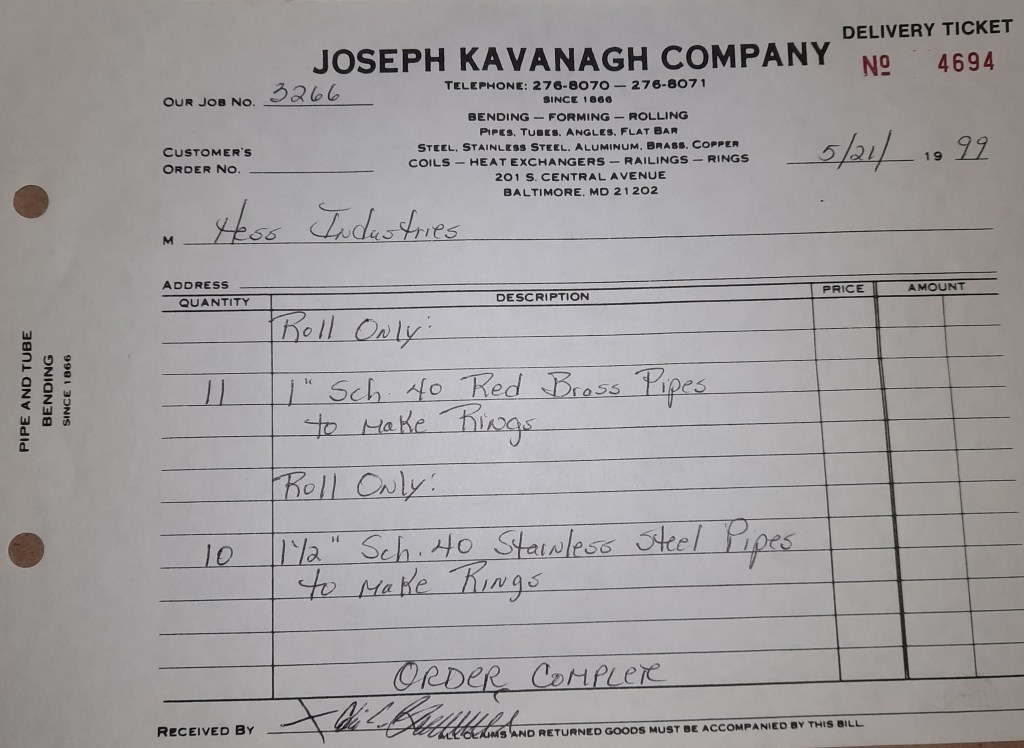 DELIVERY TICKET
JOSEPH KAVANAGH COMPANY
Nº 4694
TELEPHONE: 276-8070 — 276-8071
OUR JOB NO. 3266
SINCE 1866
BENDING — FORMING — ROLLING
PIPES, TUBES, ANGLES, FLAT BAR
STEEL, STAINLESS STEEL, ALUMINUM, BRASS, COPPER
CUSTOMER'S
ORDER NO.
COILS — HEAT EXCHANGERS — RAILINGS — RINGS
5/21/ 19 99
201 S. CENTRAL AVENUE
BALTIMORE, MD 21202
M Hess Industries
ADDRESS
QUANTITY DESCRIPTION PRICE AMOUNT
Roll Only:
11 1" Sch. 40 Red Brass Pipes
to Make Rings
Roll Only:
10 1 1/2" Sch. 40 Stainless Steel Pipes
to Make Rings
ORDER COMPLETE
RECEIVED BY X
ALL CLAIMS AND RETURNED GOODS MUST BE ACCOMPANIED BY THIS BILL
PIPE AND TUBE
BENDING
SINCE 1866